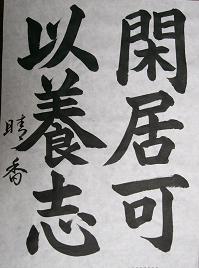 閑居可
以養志
晴香